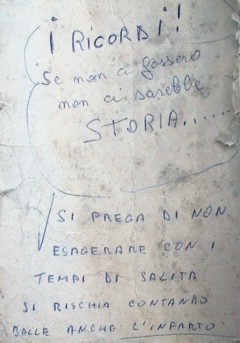 I RICORDI!
Se non ci fossero
non ci sarebbe
STORIA......
SI PREGA DI NON
ESAGERARE CON I
TEMPI DI SALITA
SI RISCHIA CONTANDO
BALLE ANCHE L'INFARTO